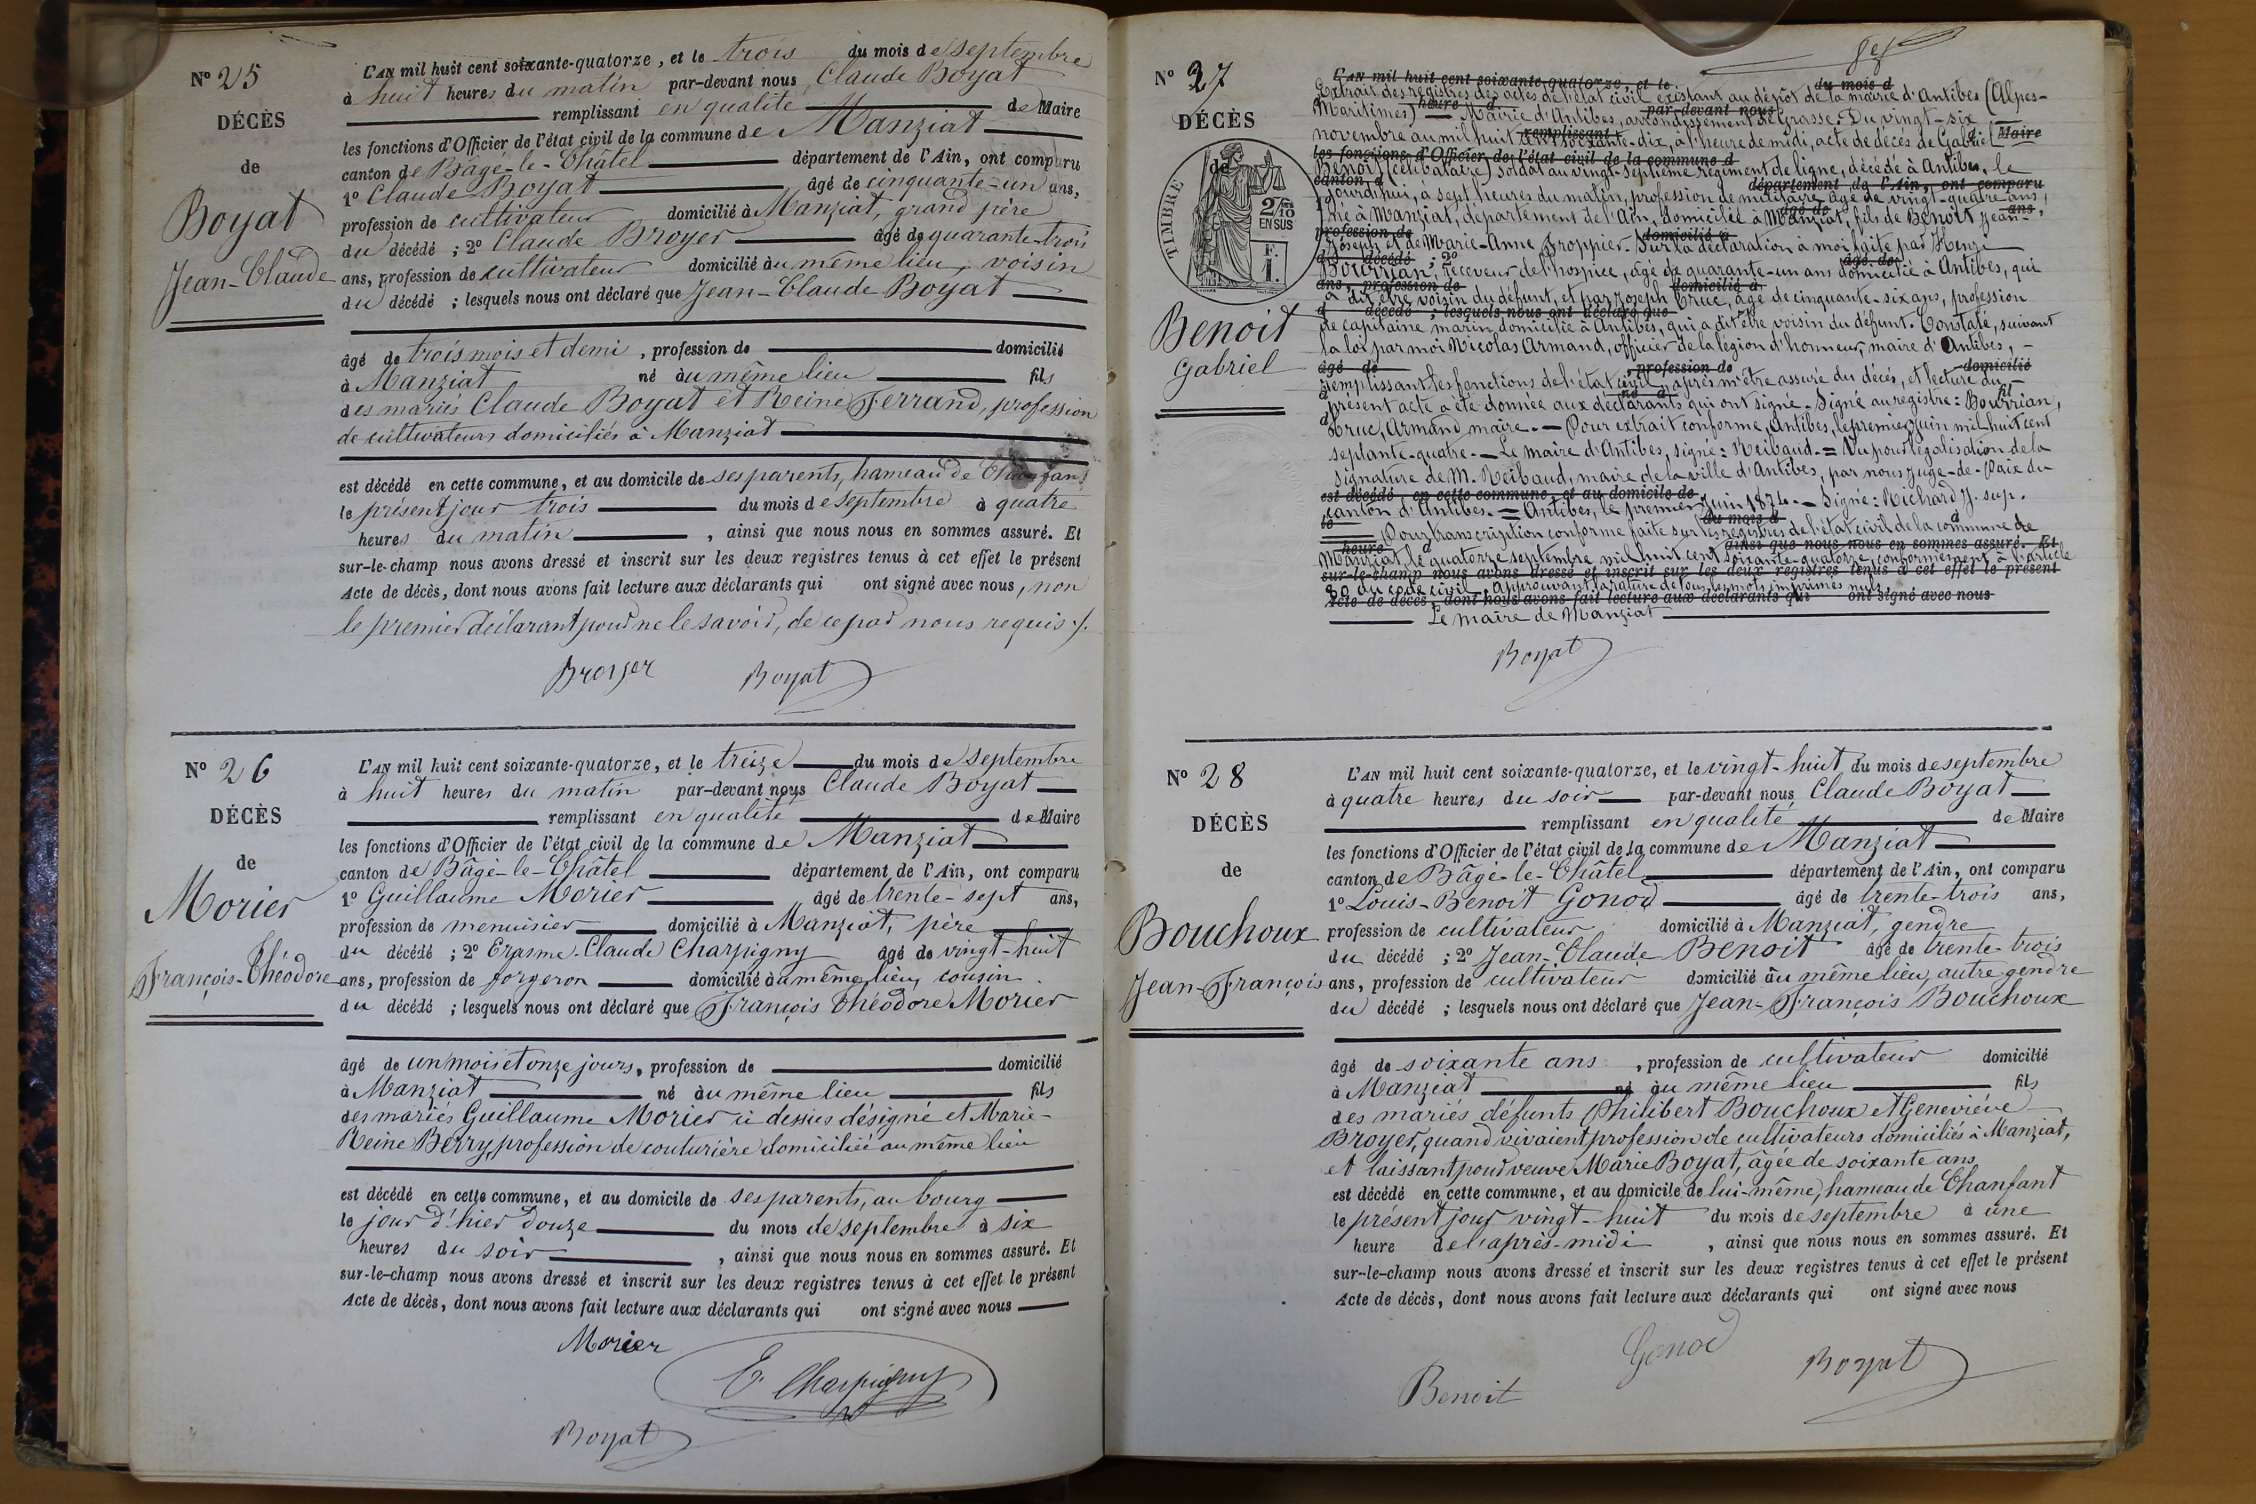 N° 25
DÉCÈS
de
Boyat
Jean-Claude
L'AN mil huit cent soixante-quatorze, et le trois du mois de septembre
à huit heures du matin par-devant nous Claude Boyat
remplissant en qualité de Maire
les fonctions d'Officier de l'état civil de la commune de Manziat
canton de Bâgé-le-Châtel département de l'Ain, ont comparu
1° Claude Boyat âgé de cinquante-un ans,
profession de cultivateur domicilié à Manziat, grand père
du décédé ; 2° Claude Broyer âgé de quarante-trois
ans, profession de cultivateur domicilié au même lieu, voisin
du décédé ; lesquels nous ont déclaré que Jean-Claude Boyat
âgé de trois mois et demi, profession de domicilié
à Manziat né au même lieu fils
des mariés Claude Boyat et Reine Ferrand, profession
de cultivateurs domiciliés à Manziat
est décédé en cette commune, et au domicile de ses parents, hameau de
le présent jour trois du mois de septembre à quatre
heures du matin, ainsi que nous nous en sommes assuré. Et
sur-le-champ nous avons dressé et inscrit sur les deux registres tenus à cet effet le présent
Acte de décès, dont nous avons fait lecture aux déclarants qui ont signé avec nous, non
le premier déclarant pour ne le savoir, de ce par nous requis ./.
Broyer Boyat
N° 26
DÉCÈS
de
Morier
François-Théodore
L'AN mil huit cent soixante-quatorze, et le treize du mois de septembre
à huit heures du matin par-devant nous Claude Boyat
remplissant en qualité de Maire
les fonctions d'Officier de l'état civil de la commune de Manziat
canton de Bâgé-le-Châtel département de l'Ain, ont comparu
1° Guillaume Morier âgé de trente-sept ans,
profession de menuisier domicilié à Manziat, père
du décédé ; 2° Erasme-Claude Charpigny âgé de vingt-huit
ans, profession de forgeron domicilié au même lieu, cousin
du décédé ; lesquels nous ont déclaré que François Théodore Morier
âgé de un mois et onze jours, profession de domicilié
à Manziat né au même lieu fils
des mariés Guillaume Morier ci dessus désigné et Marie-
Reine Berry, profession de couturière domiciliée au même lieu
est décédé en cette commune, et au domicile de ses parents, au bourg
le jour d'hier douze du mois de septembre à six
heures du soir, ainsi que nous nous en sommes assuré. Et
sur-le-champ nous avons dressé et inscrit sur les deux registres tenus à cet effet le présent
Acte de décès, dont nous avons fait lecture aux déclarants qui ont signé avec nous
Morier
E. Charpigny
Boyat
N° 27
DÉCÈS
de
TIMBRE
2/10
EN SUS
F.
1.
Benoit
Gabriel
Extrait des registres des actes de l'état civil existant au dépôt de la mairie d'Antibes (Alpes-
Maritimes) — Mairie d'Antibes, arrondissement de Grasse. Du vingt-six
novembre an mil huit cent soixante-dix, à l'heure de midi, acte de décès de Gabriel
Benoit (célibataire) soldat au vingt-septième régiment de ligne, décédé à Antibes, le
jourd'hui, à sept heures du matin, profession de militaire âgé de vingt-quatre ans,
né à Manziat, département de l'Ain, domicilié à Manziat, fils de Benoit Jean-
Joseph et de Marie-Anne Froppier. Sur la déclaration à moi faite par Henri
Bourrian, receveur de l'hospice, âgé de quarante-un ans domicilié à Antibes, qui
a dit être voisin du défunt, et par Joseph Cruc, âgé de cinquante-six ans, profession
de capitaine marin domicilié à Antibes, qui a dit être voisin du défunt. Constaté, suivant
la loi par moi Nicolas Armand, officier de la légion d'honneur, maire d'Antibes, -
remplissant les fonctions de l'état civil, après m'être assuré du décès, et lecture du
présent acte a été donnée aux déclarants qui ont signé. Signé au registre : Bourrian,
Cruc, Armand maire. — Pour extrait conforme, Antibes, le premier Juin mil huit cent
septante-quatre. — Le maire d'Antibes, signé : Reibaud. = Vu pour légalisation de la
signature de M. Reibaud, maire de la ville d'Antibes, par nous Juge-de-Paix du
canton d'Antibes. = Antibes, le premier Juin 1874. — Signé : Richard J. sup.
Pour transcription conforme faite sur les registres de l'état civil de la commune de
Manziat, le quatorze septembre mil huit cent soixante-quatorze conformément à l'article
80 du code civil. Approuvant la rature de tous les mots imprimés nuls.
Le maire de Manziat
Boyat
N° 28
DÉCÈS
de
Bouchoux
Jean-François
L'AN mil huit cent soixante-quatorze, et le vingt-huit du mois de septembre
à quatre heures du soir par-devant nous Claude Boyat
remplissant en qualité de Maire
les fonctions d'Officier de l'état civil de la commune de Manziat
canton de Bâgé-le-Châtel département de l'Ain, ont comparu
1° Louis-Benoit Gonod âgé de trente-trois ans,
profession de cultivateur domicilié à Manziat, gendre
du décédé ; 2° Jean-Claude Benoit âgé de trente-trois
ans, profession de cultivateur domicilié au même lieu, autre gendre
du décédé ; lesquels nous ont déclaré que Jean-François Bouchoux
âgé de soixante ans, profession de cultivateur domicilié
à Manziat né au même lieu fils
des mariés défunts Philibert Bouchoux et Geneviève
Broyer, quand vivaient profession de cultivateurs domiciliés à Manziat,
et laissant pour veuve Marie Boyat, âgée de soixante ans
est décédé en cette commune, et au domicile de lui-même, hameau de Chanfant
le présent jour vingt-huit du mois de septembre à une
heure de l'après-midi, ainsi que nous nous en sommes assuré. Et
sur-le-champ nous avons dressé et inscrit sur les deux registres tenus à cet effet le présent
Acte de décès, dont nous avons fait lecture aux déclarants qui ont signé avec nous
Gonod
Benoit
Boyat